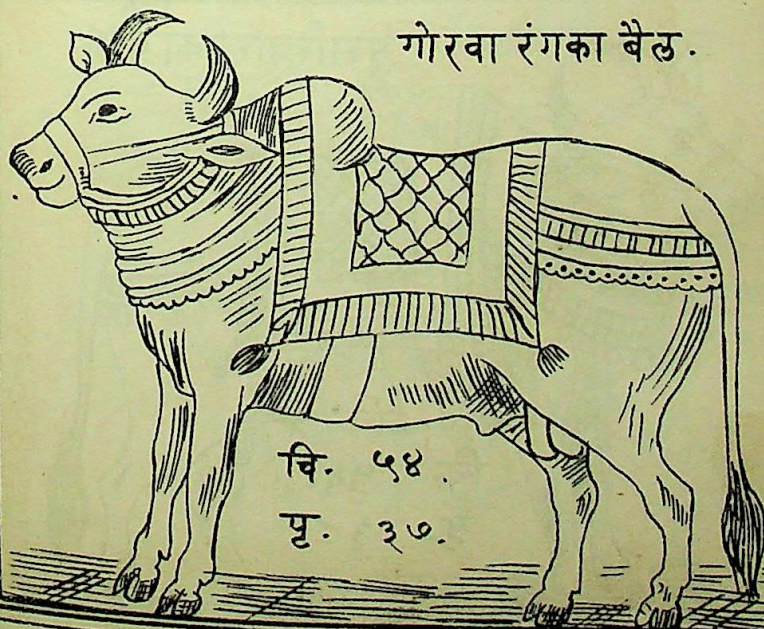 गोरवा रंगका बैल.
चि. ५४.
पृ. ३७.